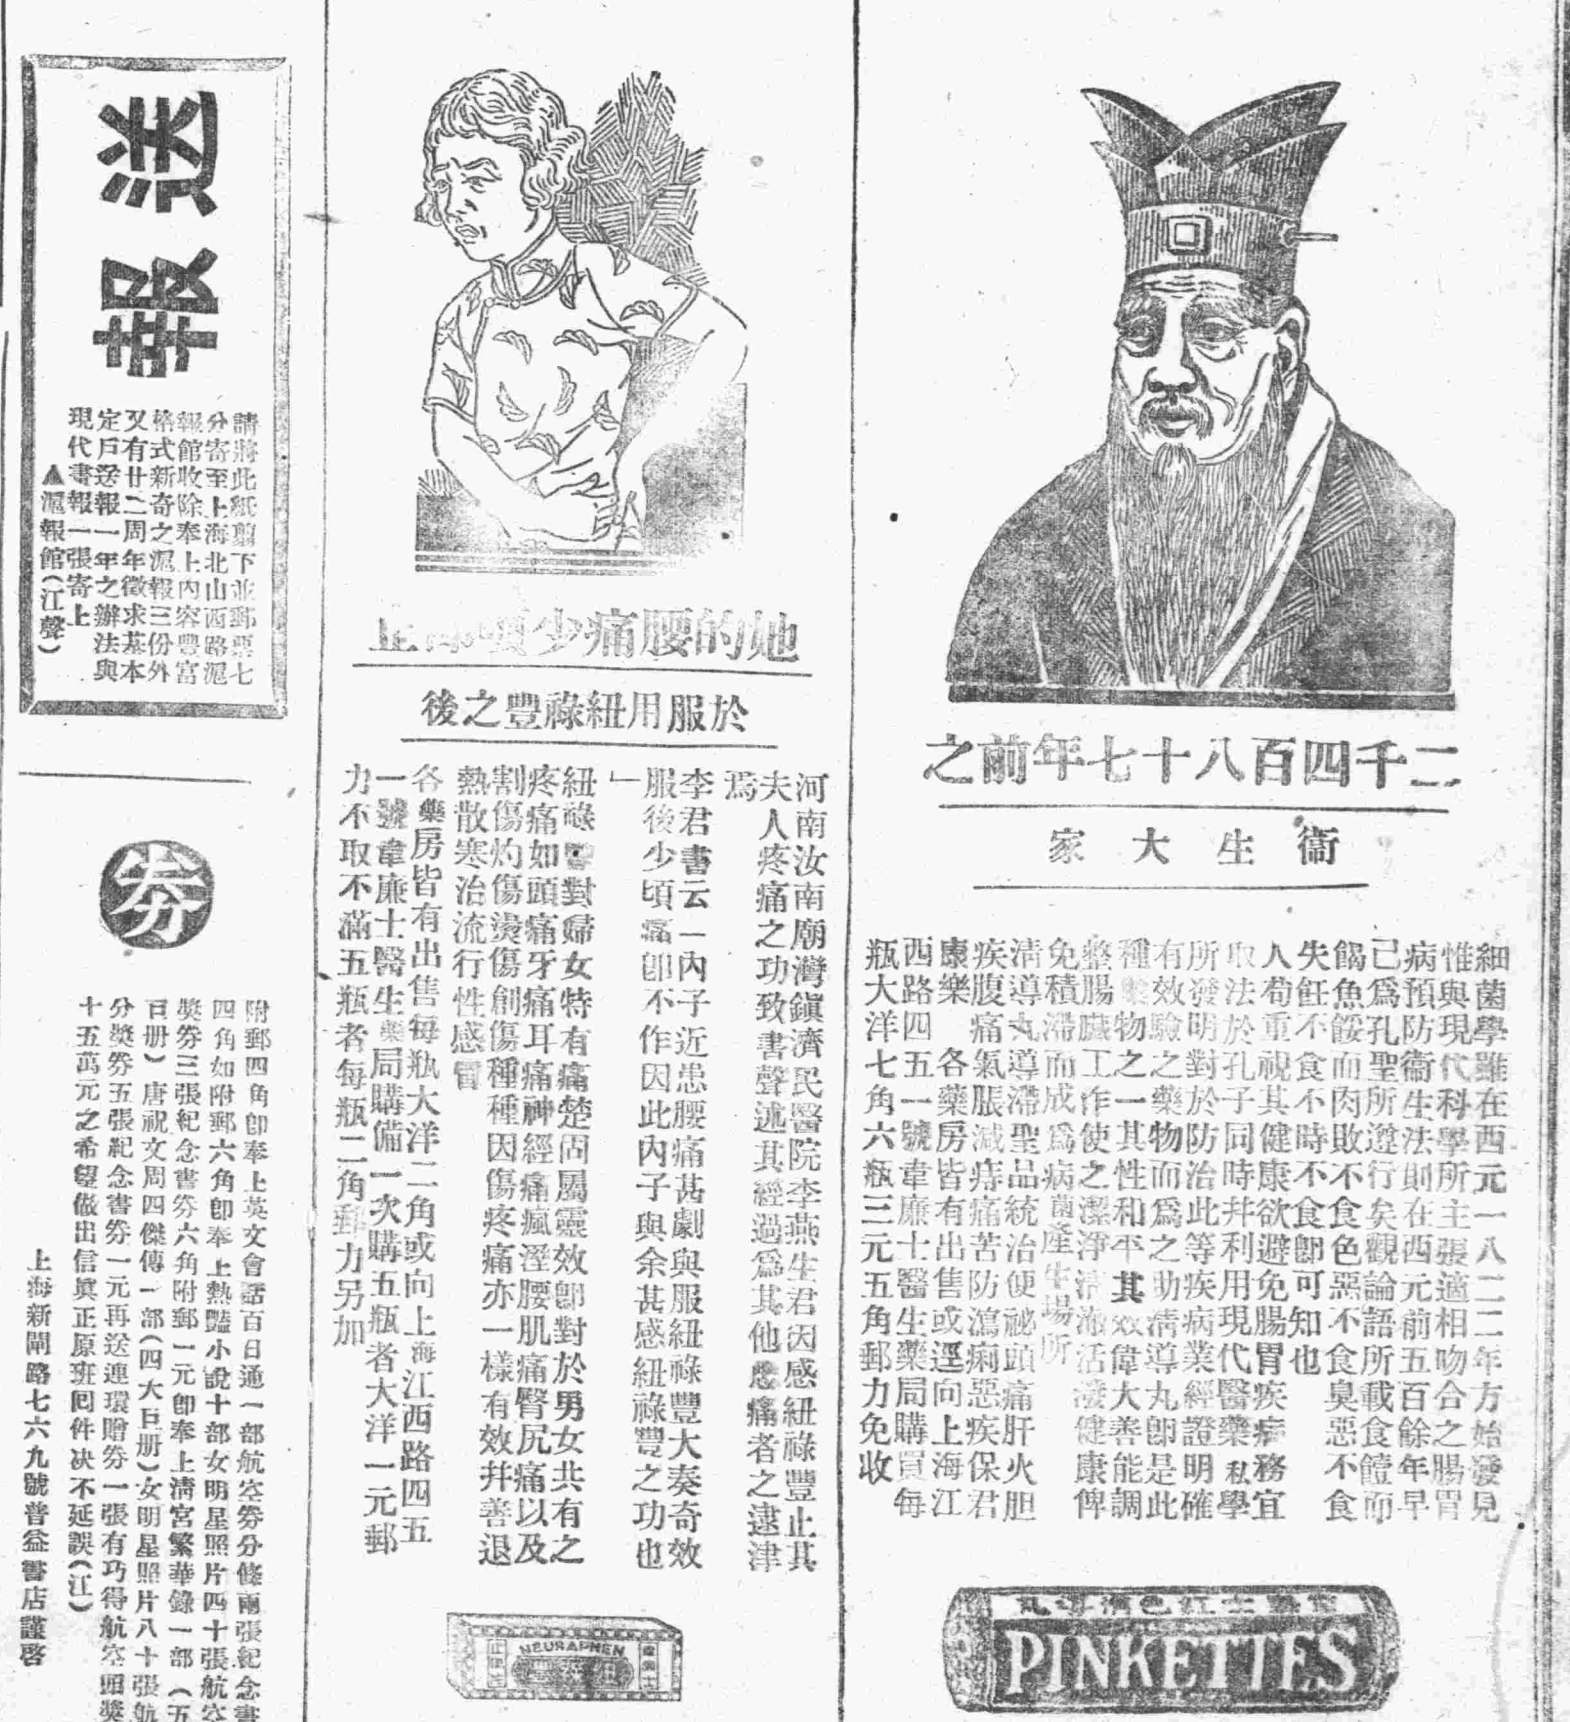 二千四百八十七年前之
衞生大家
細菌學雖在西元一八二二年方始發見
惟與現代科學所主張適相吻合之腸胃
病預防衞生法則在西元前五百餘年早
已爲孔聖所遵行矣觀論語所載食饐而
餲魚餒而肉敗不食色惡不食臭惡不食
失飪不食不時不食卽可知也
人苟重視其健康欲避免腸胃疾病務宜
取法於孔子同時幷利用現代醫藥私學
所發明對於防治此等疾病業經證明確
有效驗之藥物而爲之助淸導丸卽是此
種藥物之一其性和平其效偉大善能調
整腸臟工作使之潔淨淸潔活潑健康俾
免積滯而成爲病菌產生場所
淸導丸導滯聖品統治便祕頭痛肝火胆
疾腹痛氣脹減痔痛苦防瀉痢惡疾保君
康樂 各藥房皆有出售或逕向上海江
西路四五一號韋廉士醫生藥局購買每
瓶大洋七角六瓶三元五角郵力免收
PINKETTES
她的腰痛少頃卽止
於服用紐祿豐之後
河南汝南廟灣鎭濟民醫院李燕生君因感紐祿豐止其
夫人疼痛之功致書聲述其經過爲其他患痛者之逮津
焉
李君書云「內子近患腰痛甚劇與服紐祿豐大奏奇效
服後少頃痛卽不作因此內子與余甚感紐祿豐之功也
」
紐祿豐對婦女特有痛楚固屬靈效卽對於男女共有之
疼痛如頭痛牙痛耳痛神經痛瘋溼腰肌痛臀尻痛以及
割傷灼傷燙傷創傷種種因傷疼痛亦一樣有效幷善退
熱散寒治流行性感冒
各藥房皆有出售每瓶大洋二角或向上海江西路四五
一號韋廉士醫生藥局購備一次購五瓶者大洋一元郵
力不取不滿五瓶者每瓶二角郵力另加
NEURAPHEN
送報
請將此紙剪下並郵票七
分寄至上海北山西路滬
報館收除奉上內容豐富
格式新奇之滬報三份外
又有廿二周年徵求基本
定戶送報一年之辦法與
現代書報一張寄上
▲滬報館(江聲)
券
附郵四角卽奉上英文會話百日通一部航空券分條兩張紀念書
四角如附郵六角卽奉上熱豔小說十部女明星照片四十張航空
獎券三張紀念書券六角附郵一元卽奉上淸宮繁華錄一部(五
百册)唐祝文周四傑傳一部(四大巨册)女明星照片八十張航
分獎券五張紀念書券一元再送連環贈券一張有巧得航空頭獎
十五萬元之希望做出信眞正原班囘件决不延誤(江)
上海新閘路七六九號普益書店謹啓